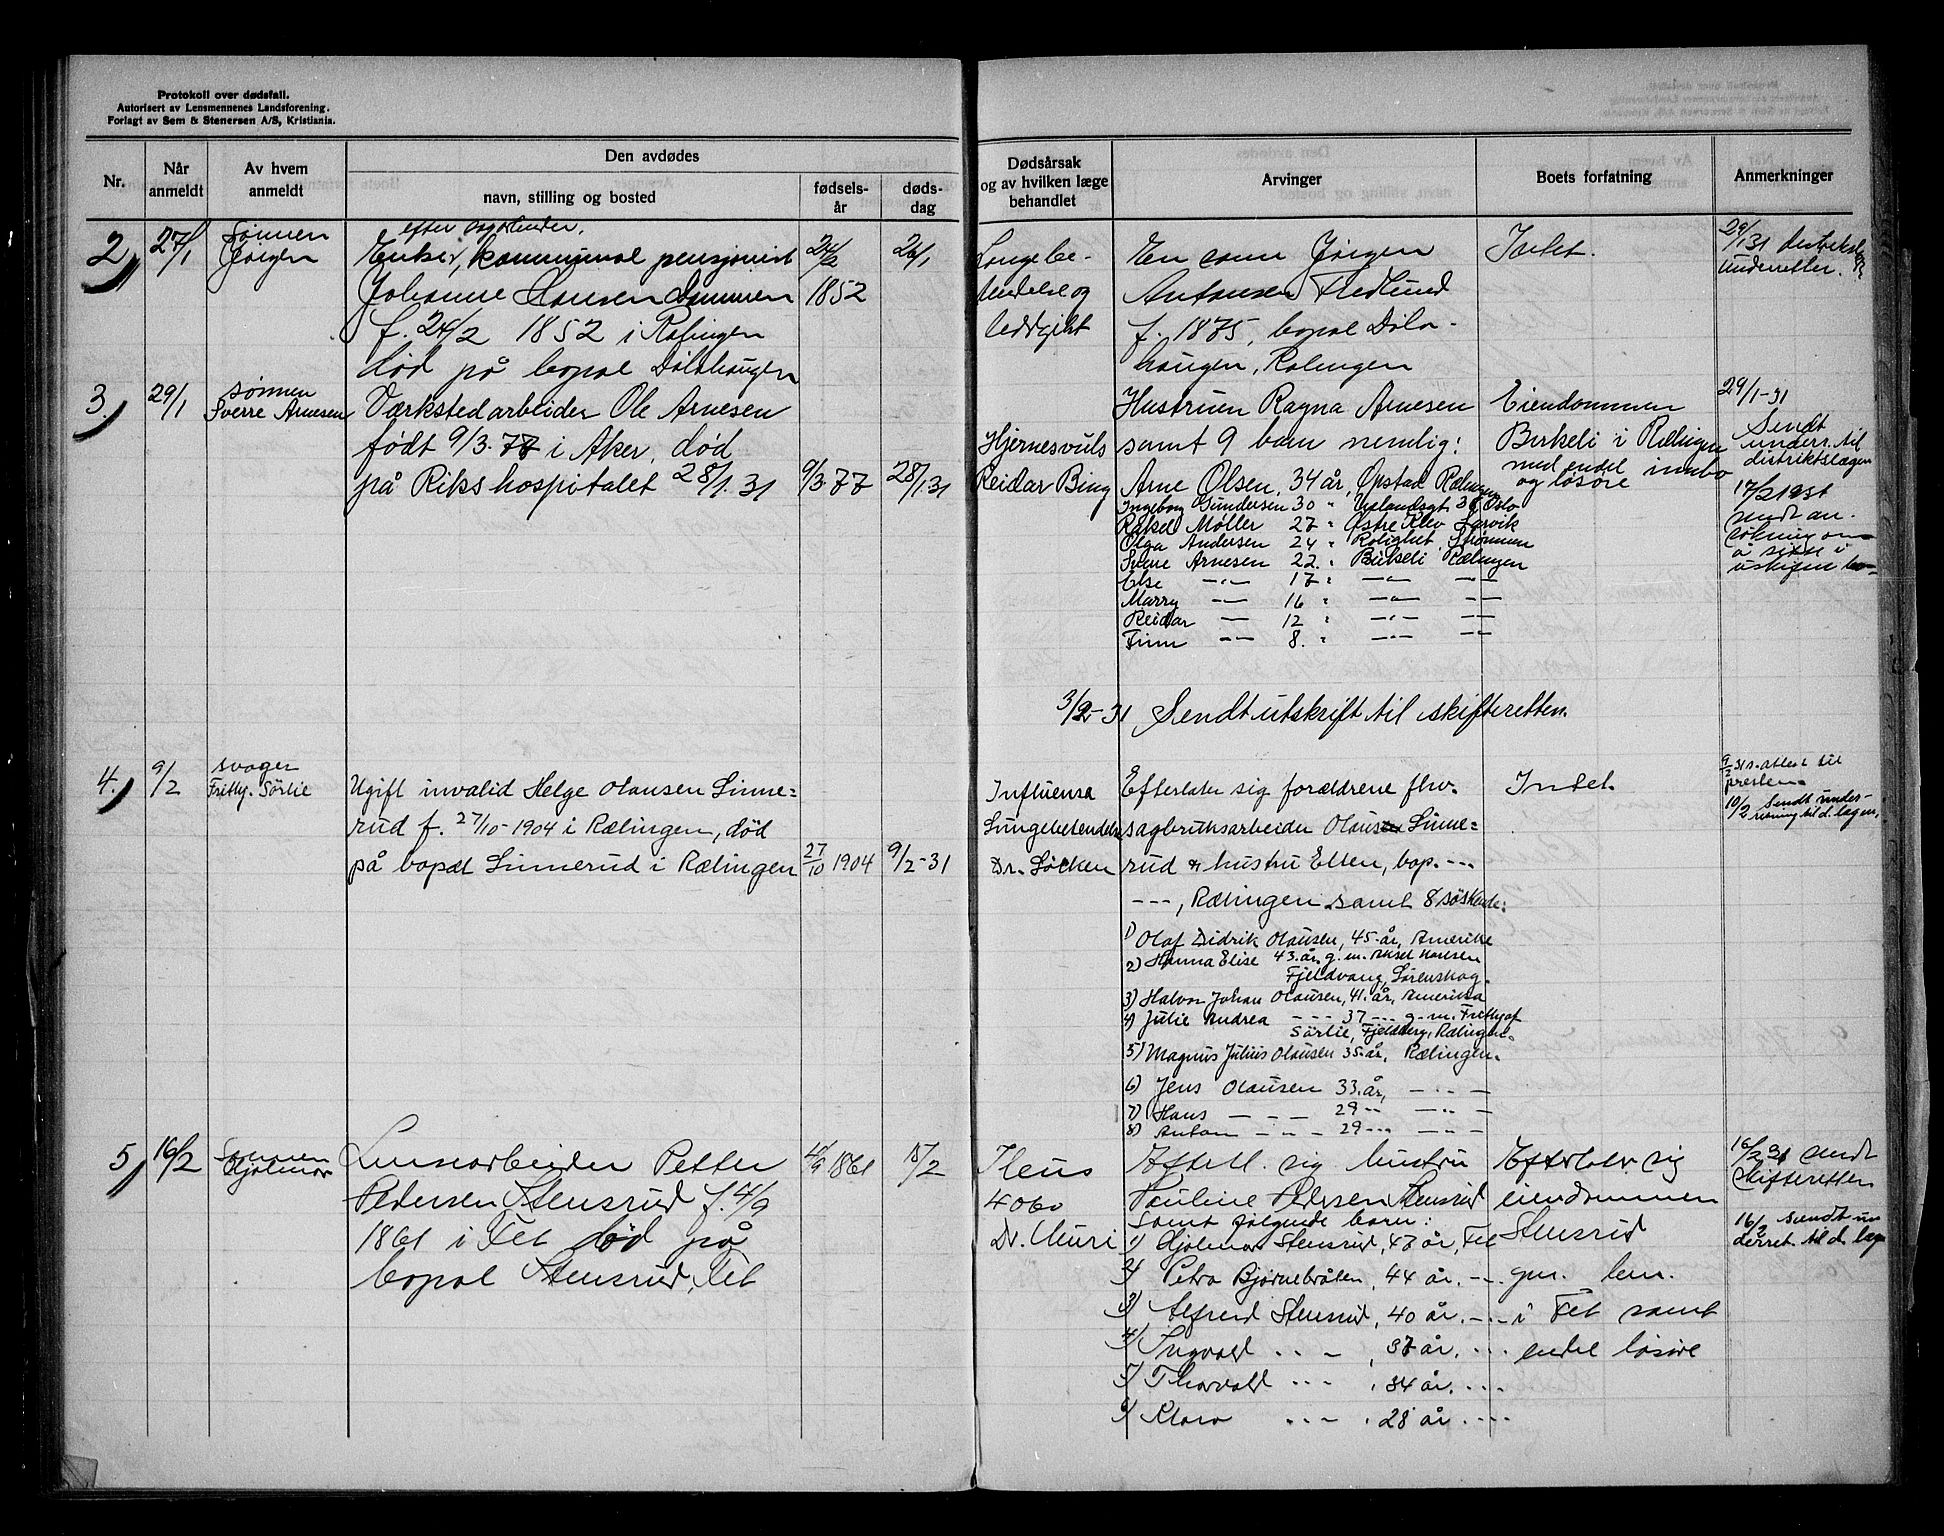 Protokoll over dødsfall.
Autorisert av Lensmennenes Landsforening.
Forlagt av Sem & Stenersen A/S, Kristiania.
Nr.
Når anmeldt
Av hvem anmeldt
Den avdødes
navn, stilling og bosted
fødsels-år
døds-dag
Dødsårsak og av hvilken læge behandlet
Arvinger
Boets forfatning
Anmerkninger
2
27/1
Sønnen
Jørgen
efter
Enke, kommunal pensjonist
Johanne Hansen
f. 24/2 1852 i Rælingen
død på bopæl Dølahaugen
24/2
1852
26/1
Lungebe-
tendelse og
En sønn Jørgen
Antonsen Hedlund
f. 1875, bopæl Døla-
haugen, Rælingen
Intet.
29/1 31 distriktsl.
underretter.
3.
29/1
sønnen
Sverre Arnesen
Værkstedarbeider Ole Arnesen
født 9/3.77 i Aker, død
på Rikshospitalet 28/1.31
9/3.77
28/1.31
Hjernesvuls
Reidar Bing
Hustruen Ragna Arnesen
samt 9 barn nemlig:
Arne Olsen, 34 år, Ørstad Rælingen
Ingeborg Gundersen 30 " Uelandsgt. 36 Oslo
Rakel Møller 27 " Østre Klev Larvik
Olga Andersen 24 " Rolighet, Strømmen
Sverre Arnesen 22. " Birkeli Rælingen
Else —"— 17 " —"— —"—
Marry —"— 16 " —"— —"—
Reidar — 12 " —"— —"—
Finn —"— 8. " —"— —"—
Eiendommen
Birkeli i Rælingen
med endel innbo
og løsøre
29/1-31
Sendt
underr. til
distriktslægen
17/2 1931
sendt an-
søkning om
å sitte i
uskiftet bo
3/2-31 Sendt utskrift til skifteretten.
4.
9/2
svoger
Frithj. Sørlie
Ugift invalid Helge Olausen Linne=
rud f. 27/10-1904 i Rælingen, død
på bopæl Linnerud i Rælingen
27/10 1904
9/2-31
Influensa
Lungebetendelse
Dr. Løcken
Efterlater sig forældrene fhv.
sagbruksarbeider Olaus Linne=
rud & hustru Ellen, bop. ---
---, Rælingen samt 8 søskende:
1) Olaf Didrik Olausen, 45 år, Amerika
2) Hanna Elise 43 år, g. m. Aksel Karlsen
Fjeldvang, Lørenskog.
3) Halvor Johan Olausen, 41. år, Amerika
4) Julie Andrea --- 37 --- g. m. Frithjof
Sørlie, Fjeldberg, Rælingen.
5) Magnus Julius Olausen 35 år, Rælingen.
6) Jens Olausen 33 år, — " —
7) Hans — — — 29 " — " —
8) Anton — — — 29 " — " —
Intet.
9/2 31 s. attest til
presten.
10/2 Sendt under-
retning til d. lægen.
5
16/2
Sønnen
Hjalmar
Lensearbeider Petter
Pedersen Stensrud f. 4/9
1861 i Fet død på
bopæl Stensrud, Fet
4/9 1861
15/2
Ileus
4060
Dr. Muri
Efterl. sig hustru
Pauline Pedersen Stensrud
samt følgende barn:
1) Hjalmar Stensrud, 47 år, Fet
2) Petra Bjørnebråten, 44 år. -"-
3) Alfred Stensrud, 40 år. -"-
4) Ingvald " " — , 37 år. " " "
5) Thorvald " " " , 34 år. " " "
6) Klara " " — , 28 år. " " "
Efterlater sig
eiendommen
Stensrud
gnr. bnr.
i Fet samt
endel løsøre
16/2 31 sendt
skifteretten
16/2 sendt un
derret. til d. læge